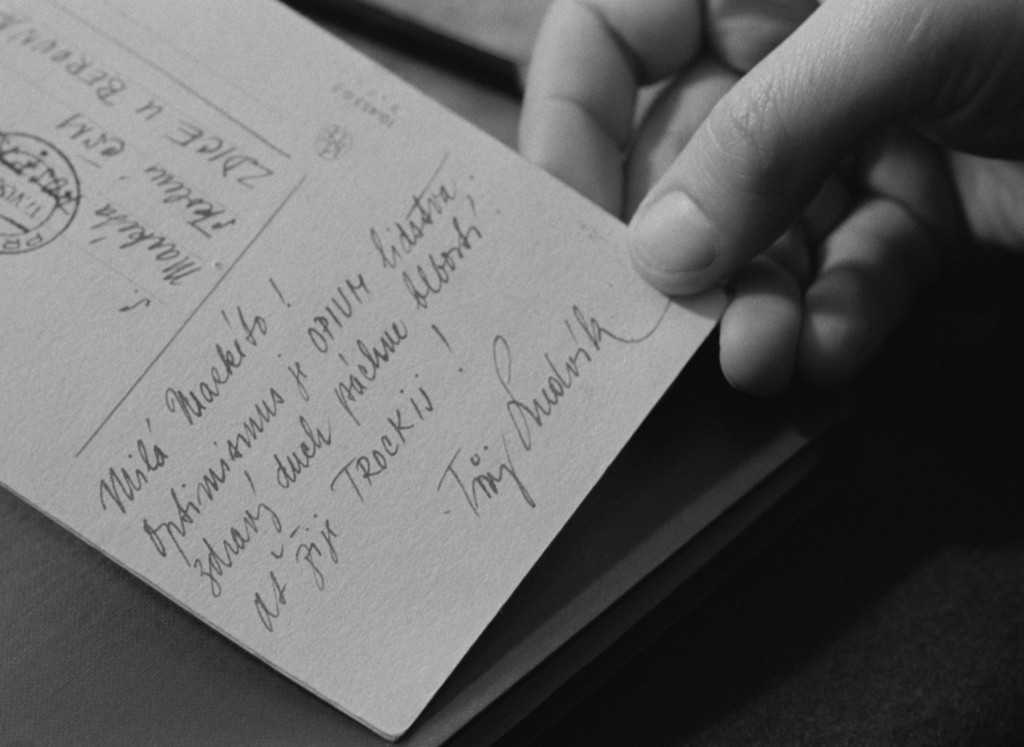 Milá Markéto!
Optimismus je OPIUM lidstva.
zdravý duch páchne blbostí.
ať žije TROCKIJ!
Tvůj Ludvík
S.
Markéta
Školní ČSM
ZDICE U BEROUNA